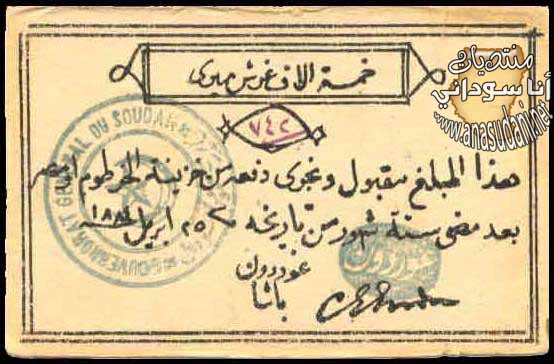 خمسة الاف غرش ميرى
٧٤٢
هذا المبلغ مقبول ويجرى دفعه من خزينة الخرطوم او مصر
بعد مضى ستة شهور من تاريخه ٢٥ ابريل ١٨٨٤
غوردون
باشا
GOUVERNORAT GENERAL DU SOUDAN
منتديات
أنا سوداني
www.anasudani.net